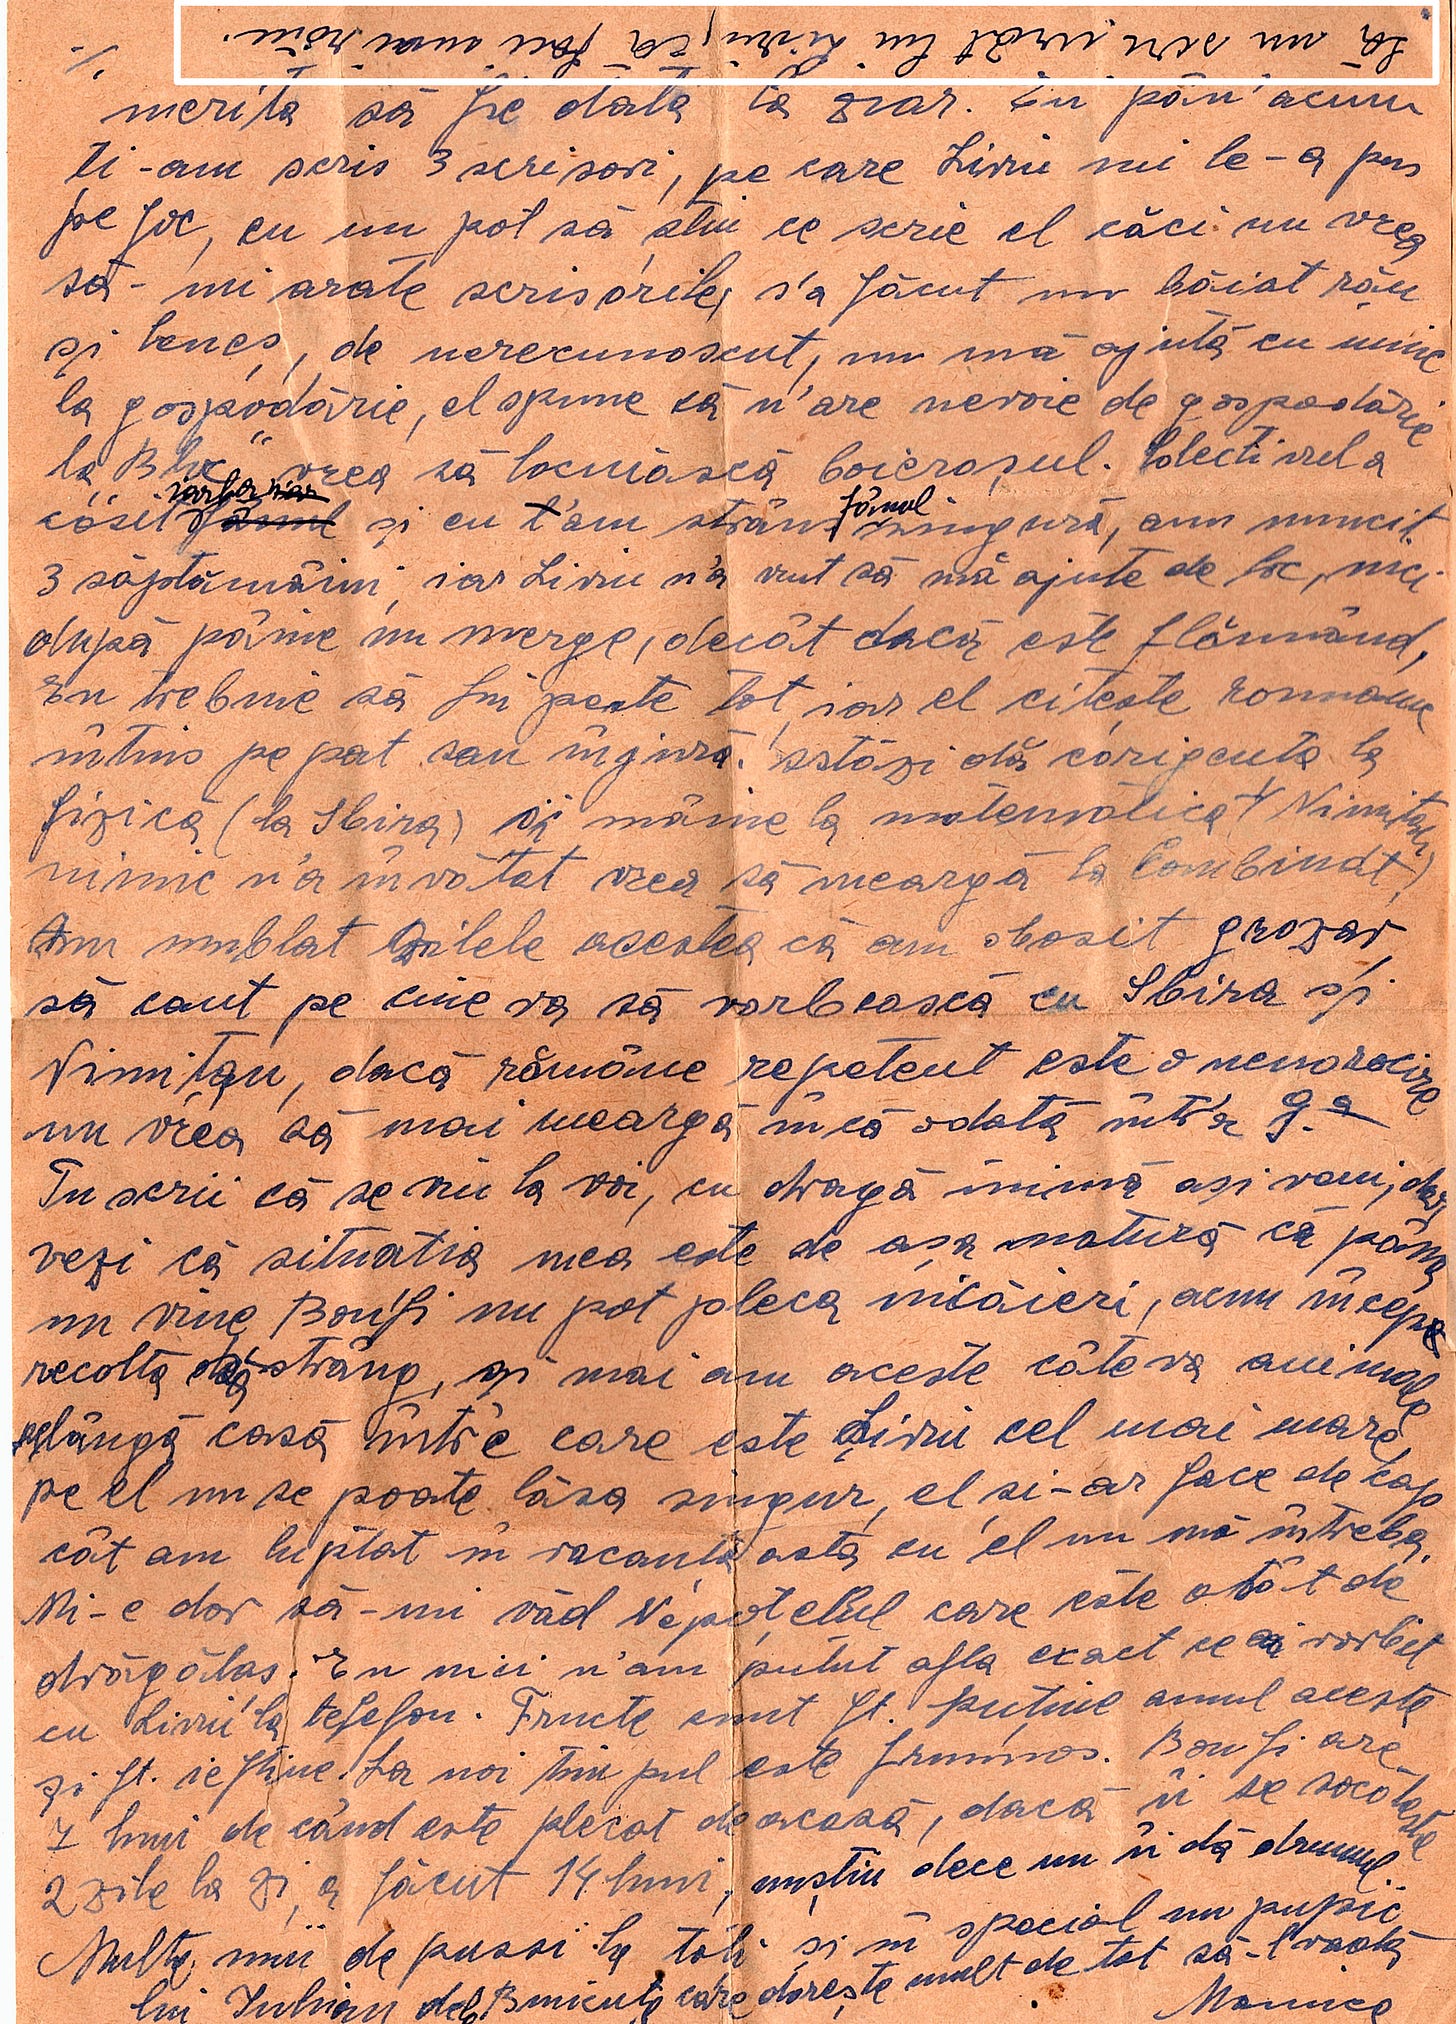 să nu scrii urât lui Liviu, că face numai rău.
./.
merită să fie dată la ziar. Eu păn'acum
ți-am scris 3 scrisori, pe care Liviu mi le-a pus
pe foc, eu nu pot să știu ce scrie el căci nu vrea
să-mi arate scrisorile, s'a făcut un băiat rău
și leneș, de nerecunoscut, nu mă ajută cu nimic
la gospodărie, el spune că n'are nevoie de gospodărie
la Bloc" vrea să locuiască boierașul. Colectivul a
cosit iarba iar fânul și eu l'am strâns fânul singură, am muncit
3 săptămâini, iar Liviu n'a vrut să mă ajute de loc, nici
după pâine nu merge, decât dacă este flămând,
Eu trebuie să fiu peste tot, iar el citește romane
întins pe pat sau înjură. Astăzi dă corigența la
fizică (la Sbira) și mâine la matematică (Nimițan)
nimic n'a învățat vrea să meargă la Combinat!
Am umblat zilele acestea că am obosit grozav,
să caut pe cineva să vorbească cu Sbira și
Nimițan, dacă rămâne repetent este o nenorocire
nu vrea să mai meargă încă odată într'a 9.a
Tu scrii că se viu la voi, cu dragă inimă ași veni, dar,
vezi că situația mea este de așa natură că până
nu vine Bonfi nu pot pleca nicăieri, acum începe
recolta să strâng, și mai am aceste câteva animale
pelângă casă între care este Liviu cel mai mare,
pe el nu se poate lăsa singur, el și-ar face de cap
cât am luptat în vacanța asta cu el nu mă întreba.
Mi-e dor să-mi văd Nepoțelul care este atât de
drăgălaș. Eu nici n'am putut afla exact ce ai vorbit
cu Liviu la telefon. Fructe sunt ft. puține anul acesta
și ft. ieftine. La noi timpul este frumos. Bonfi are
7 luni de când este plecat de acasă, dacă îi se socotește
2 zile la zi, a făcut 14 luni, nuștiu dece nu îi dă drumul
Multe mii de pussi la toți și în special un pupic
lui Iulian dela Bunicuța care dorește mult de tot să-l vadă
Mamica